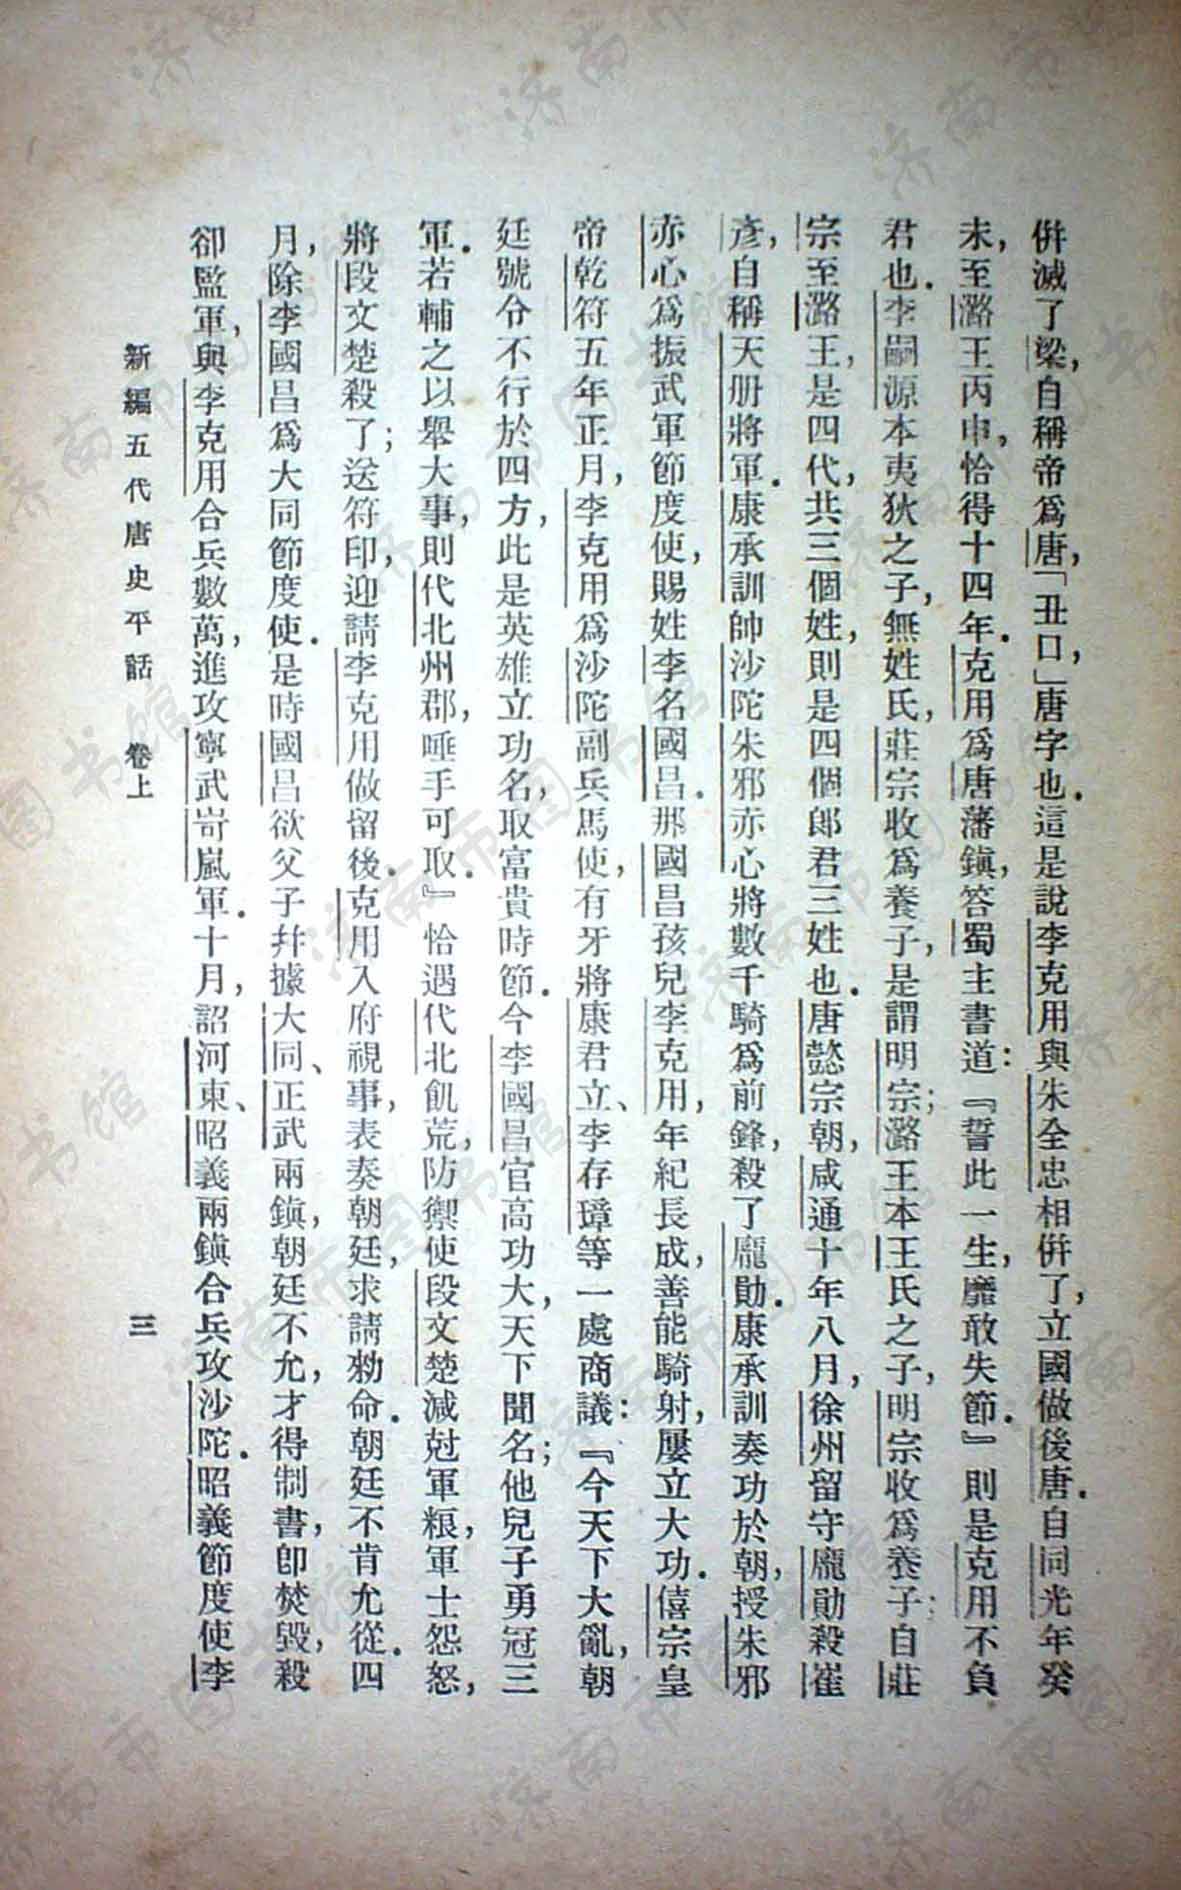 併滅了梁，自稱帝爲唐，「丑口」唐字也．這是說李克用與朱全忠相併了，立國做後唐．自同光年癸
未，至潞王丙申，恰得十四年．克用爲唐藩鎮，答蜀主書道：『誓此一生，靡敢失節．』則是克用不負
君也．李嗣源本夷狄之子，無姓氏，莊宗收爲養子，是謂明宗；潞王本王氏之子，明宗收爲養子；自莊
宗至潞王，是四代，共三個姓，則是四個郎君三姓也．唐懿宗朝，咸通十年八月，徐州留守龐勛殺崔
彥，自稱天册將軍．康承訓帥沙陀朱邪赤心將數千騎爲前鋒，殺了龐勛．康承訓奏功於朝，授朱邪
赤心爲振武軍節度使，賜姓李名國昌．那國昌孩兒李克用，年紀長成，善能騎射，屢立大功．僖宗皇
帝乾符五年正月，李克用爲沙陀副兵馬使，有牙將康君立、李存璋等一處商議：『今天下大亂，朝
廷號令不行於四方，此是英雄立功名，取富貴時節．今李國昌官高功大，天下聞名；他兒子勇冠三
軍．若輔之以舉大事，則代北州郡，唾手可取．』恰遇代北飢荒，防禦使段文楚減尅軍粮，軍士怨怒，
將段文楚殺了；送符印，迎請李克用做留後．克用入府視事，表奏朝廷，求請勅命．朝廷不肯允從．四
月，除李國昌爲大同節度使．是時國昌欲父子幷據大同、正武兩鎮，朝廷不允，才得制書，卽焚毀，殺
卻監軍，與李克用合兵數萬，進攻寧武岢嵐軍．十月，詔河東、昭義兩鎮合兵攻沙陀．昭義節度使李
新編五代唐史平話　卷上　三